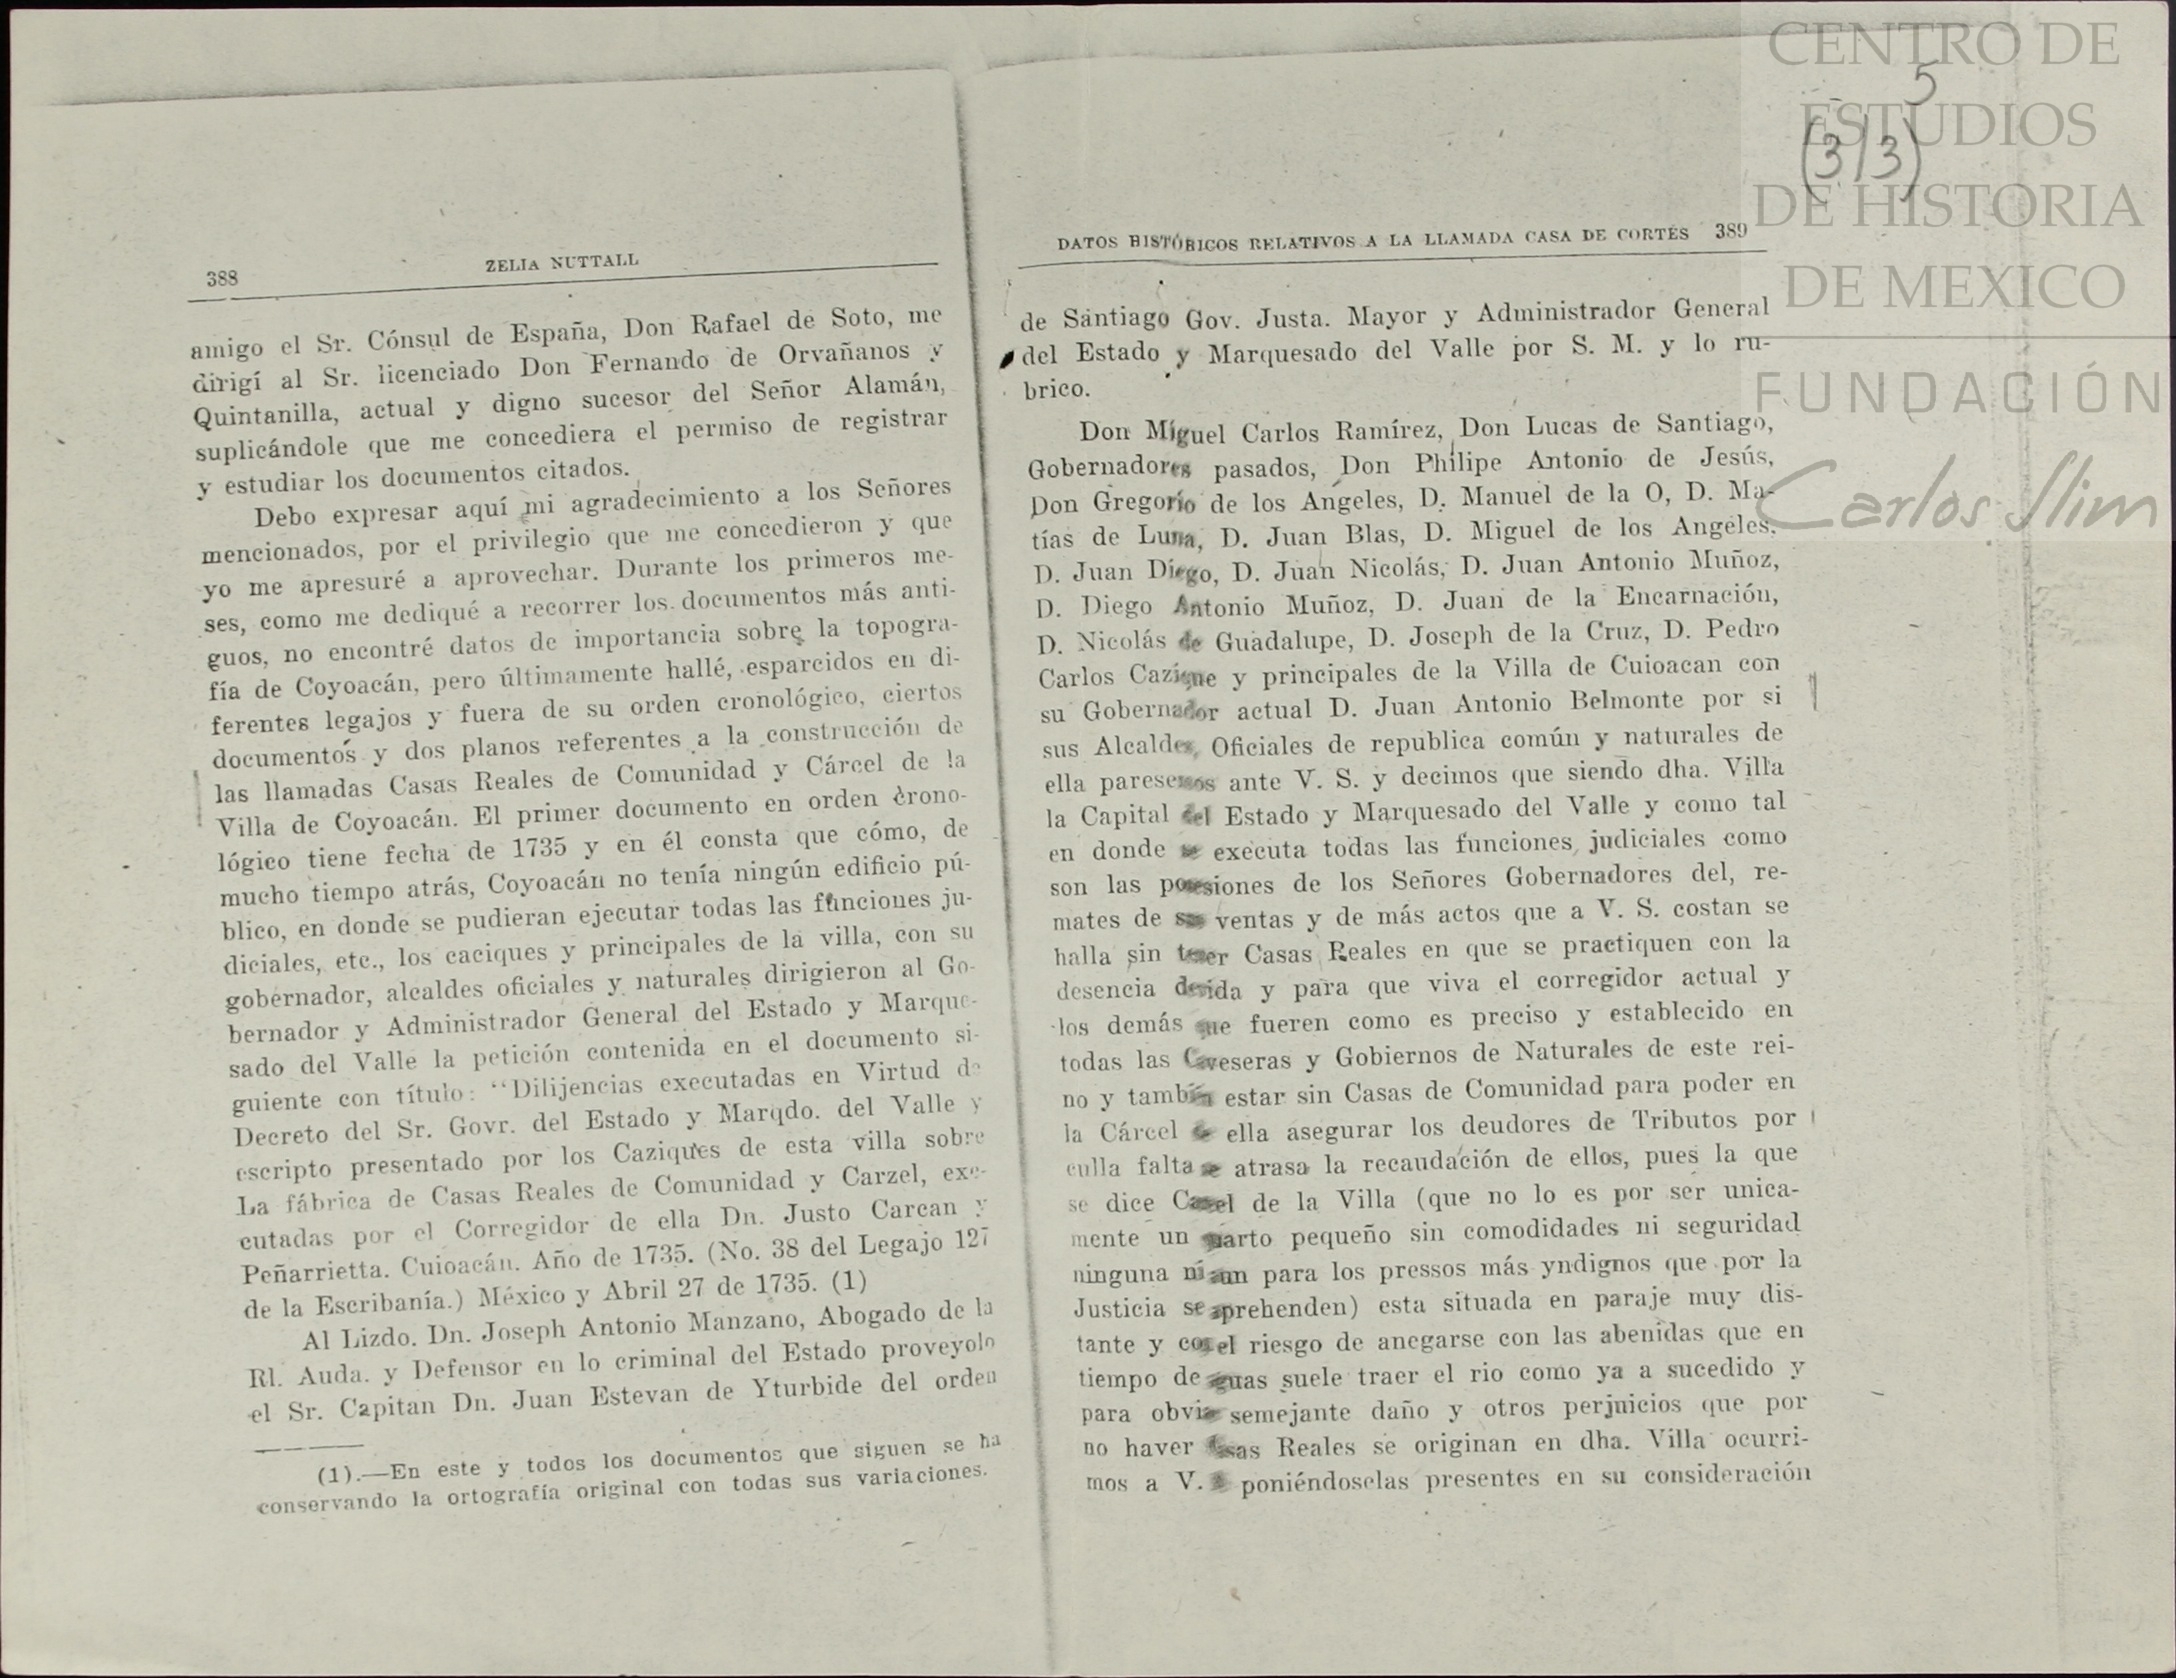 388 ZELIA NUTTALL
amigo el Sr. Cónsul de España, Don Rafael de Soto, me
dirigí al Sr. licenciado Don Fernando de Orvañanos y
Quintanilla, actual y digno sucesor del Señor Alamán,
suplicándole que me concediera el permiso de registrar
y estudiar los documentos citados.
Debo expresar aquí mi agradecimiento a los Señores
mencionados, por el privilegio que me concedieron y que
yo me apresuré a aprovechar. Durante los primeros me-
ses, como me dediqué a recorrer los documentos más anti-
guos, no encontré datos de importancia sobre la topogra-
fía de Coyoacán, pero últimamente hallé, esparcidos en di-
ferentes legajos y fuera de su orden cronológico, ciertos
documentos y dos planos referentes a la construcción de
las llamadas Casas Reales de Comunidad y Cárcel de la
Villa de Coyoacán. El primer documento en orden crono-
lógico tiene fecha de 1735 y en él consta que cómo, de
mucho tiempo atrás, Coyoacán no tenía ningún edificio pú-
blico, en donde se pudieran ejecutar todas las funciones ju-
diciales, etc., los caciques y principales de la villa, con su
gobernador, alcaldes oficiales y naturales dirigieron al Go-
bernador y Administrador General del Estado y Marque-
sado del Valle la petición contenida en el documento si-
guiente con título: "Dilijencias executadas en Virtud de
Decreto del Sr. Govr. del Estado y Marqdo. del Valle y
escripto presentado por los Caziques de esta villa sobre
La fábrica de Casas Reales de Comunidad y Carzel, exe-
cutadas por el Corregidor de ella Dn. Justo Carcan y
Peñarrietta. Cuioacán. Año de 1735. (No. 38 del Legajo 127
de la Escribanía.) México y Abril 27 de 1735. (1)
Al Lizdo. Dn. Joseph Antonio Manzano, Abogado de la
Rl. Auda. y Defensor en lo criminal del Estado proveyolo
el Sr. Capitan Dn. Juan Estevan de Yturbide del orden
(1).—En este y todos los documentos que siguen se ha
conservando la ortografía original con todas sus variaciones.
5
(3/3)
DATOS HISTÓRICOS RELATIVOS A LA LLAMADA CASA DE CORTÉS 389
de Santiago Gov. Justa. Mayor y Administrador General
del Estado y Marquesado del Valle por S. M. y lo ru-
brico.
Don Miguel Carlos Ramírez, Don Lucas de Santiago,
Gobernadores pasados, Don Philipe Antonio de Jesús,
Don Gregorio de los Angeles, D. Manuel de la O, D. Ma-
tías de Luna, D. Juan Blas, D. Miguel de los Angeles,
D. Juan Diego, D. Juan Nicolás, D. Juan Antonio Muñoz,
D. Diego Antonio Muñoz, D. Juan de la Encarnación,
D. Nicolás de Guadalupe, D. Joseph de la Cruz, D. Pedro
Carlos Cazique y principales de la Villa de Cuioacan con
su Gobernador actual D. Juan Antonio Belmonte por si
sus Alcaldes, Oficiales de republica común y naturales de
ella paresemos ante V. S. y decimos que siendo dha. Villa
la Capital del Estado y Marquesado del Valle y como tal
en donde se executa todas las funciones judiciales como
son las posesiones de los Señores Gobernadores del, re-
mates de sus ventas y de más actos que a V. S. costan se
halla sin tener Casas Reales en que se practiquen con la
desencia devida y para que viva el corregidor actual y
los demás que fueren como es preciso y establecido en
todas las Caveseras y Gobiernos de Naturales de este rei-
no y también estar sin Casas de Comunidad para poder en
la Cárcel de ella asegurar los deudores de Tributos por
culla falta se atrasa la recaudación de ellos, pues la que
se dice Carcel de la Villa (que no lo es por ser unica-
mente un quarto pequeño sin comodidades ni seguridad
ninguna ni aun para los pressos más yndignos que por la
Justicia se aprehenden) esta situada en paraje muy dis-
tante y con el riesgo de anegarse con las abenidas que en
tiempo de aguas suele traer el rio como ya a sucedido y
para obviar semejante daño y otros perjuicios que por
no haver Casas Reales se originan en dha. Villa ocurri-
mos a V. S. poniéndoselas presentes en su consideración
CENTRO DE
ESTUDIOS
DE HISTORIA
DE MEXICO
FUNDACIÓN
Carlos Slim